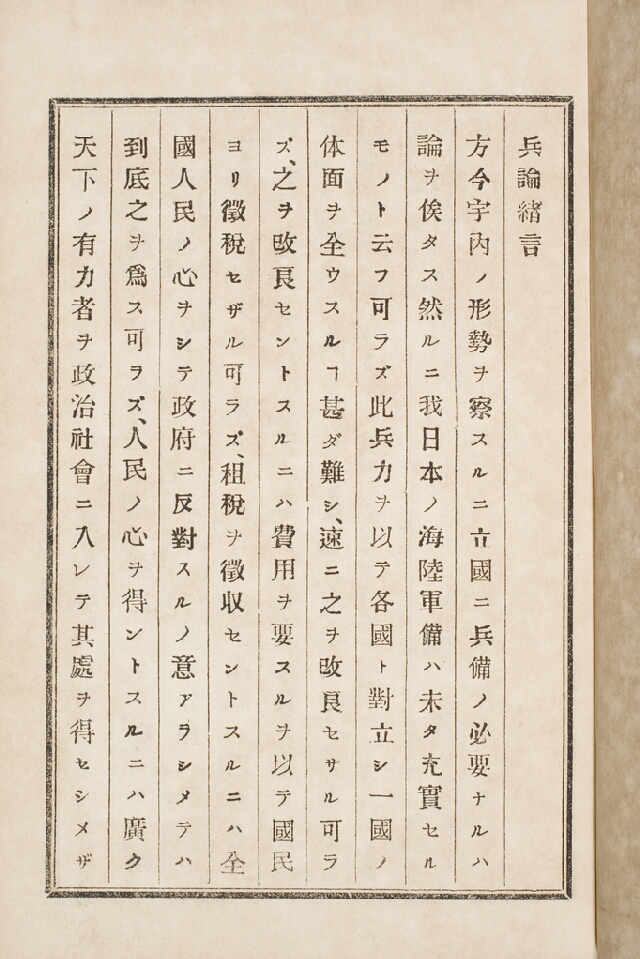 兵論緒言
方今宇内ノ形勢ヲ察スルニ立國ニ兵備ノ必要ナルハ
論ヲ俟タス然ルニ我日本ノ海陸軍備ハ未タ充實セル
モノト云フ可ラズ此兵力ヲ以テ各國ト對立シ一國ノ
体面ヲ全ウスルヿ甚ダ難シ、速ニ之ヲ改良セサル可ラ
ズ、之ヲ改良セントスルニハ費用ヲ要スルヲ以テ國民
ヨリ徵税セザル可ラズ、租税ヲ徵収セントスルニハ全
國人民ノ心ヲシテ政府ニ反對スルノ意アラシメテハ
到底之ヲ爲ス可ヲズ、人民ノ心ヲ得ントスルニハ廣ク
天下ノ有力者ヲ政治社會ニ入レテ其處ヲ得セシメザ